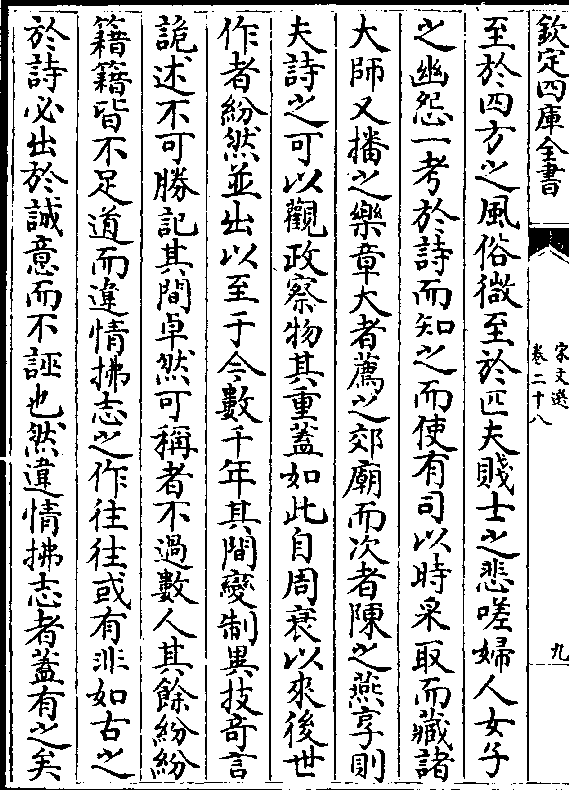 欽定四庫全書
宋文選
卷二十八
九
至於四方之風俗微至於匹夫賤士之悲嗟婦人女子
之幽怨一考於詩而知之而使有司以時采取而藏諸
大師又播之樂章大者薦之郊廟而次者陳之燕享則
夫詩之可以觀政察物其重蓋如此自周衰以來後世
作者紛然並出以至于今數千年其間變制異技竒言
詭述不可勝記其間卓然可稱者不過數人其餘紛紛
籍籍皆不足道而違情拂志之作往往或有非如古之
於詩必出於誠意而不誣也然違情拂志者蓋有之矣